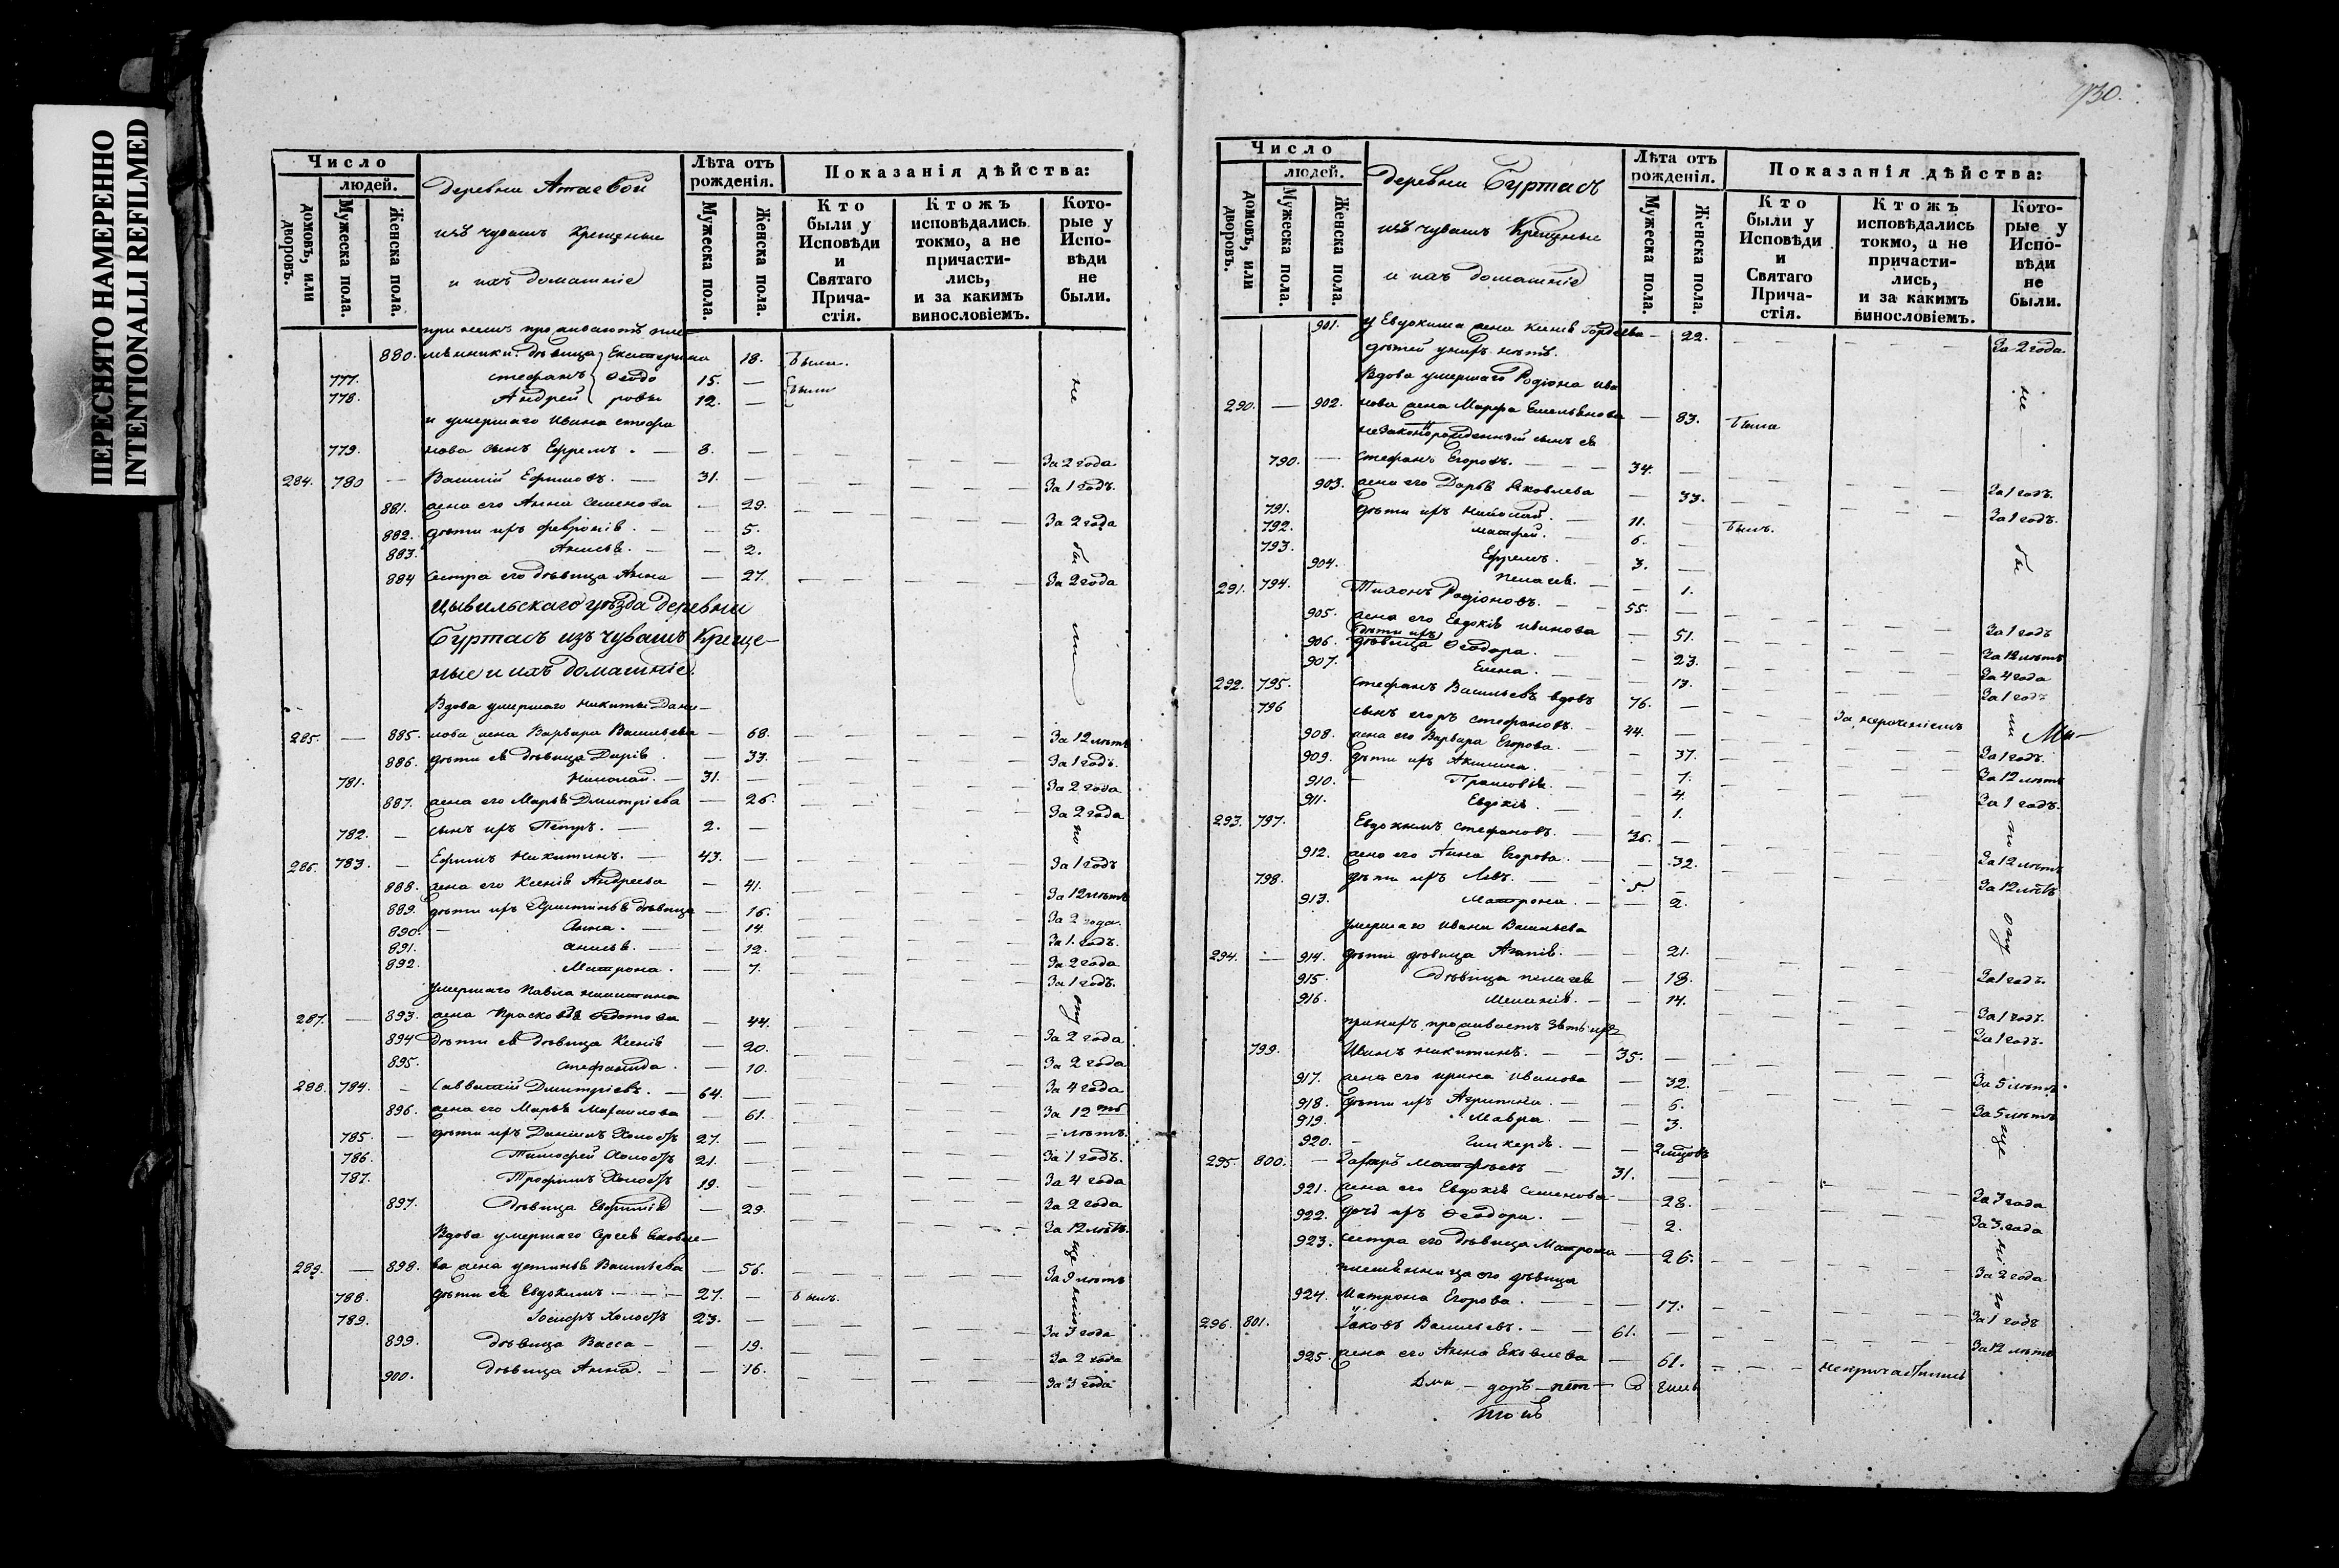 ПЕРЕСНЯТО НАМЕРЕННО
INTENTIONALLI REFILMED
Число
людей.
домовъ, или дворовъ.
Мужеска пола.
Женска пола.
Деревни Атаевой
изъ чувашъ Крещеные
и ихъ домашніе
Лѣта отъ рожденія.
Мужеска пола.
Женска пола.
Показанія дѣйства:
Кто были у Исповѣди и Святаго Прича-стія.
Ктожъ исповѣдались токмо, а не причасти-лись, и за какимъ винословіемъ.
Кото-рые у Испо-вѣди не были.
при немъ проживаютъ пле-
880. мянники: дѣвица Екатерина 18. была.
777. Стефанъ Ѳеодо 15. — были
778. Андрей ровы 12. —
и умершаго Ивана Стефа
779. нова сынъ Ефремъ. — 8. — За 2 года
284. 780 — Василій Ефимовъ. — 31. — За 1 годъ.
881. жена его Анна Семенова — 29. За 2 года
882. дѣти ихъ Февронія. — — 5.
883. Анисья. — — 2.
884 сестра его дѣвица Анна — 27. За 2 года
Цывильскаго уѣзда деревни
Буртасъ изъ чувашъ Креще-
ные и ихъ домашніе.
Вдова умершаго Никиты Дани-
285. — 885. лова жена Варвара Васильева — 68. За 12 лѣтъ
886. дѣти ея дѣвица Дарія — 33. За 1 годъ.
781. Николай. — 31. — За 2 года
887. жена его Марья Дмитріева — 26. За 2 года
782. — сынъ ихъ Петръ. — 2. —
286. 783. — Ефимъ Никитинъ. — 43. — За 1 годъ
888. жена его Ксенія Андреева — 41. За 12 лѣтъ
889. дѣти ихъ Христинья дѣвица — 16. За 2 года.
890. — Анна. — — 14. За 1 годъ.
891. Анисья. — — 12. За 2 года
892. Матрона. — 7. За 1 годъ.
умершаго Павла Никитина
287. — 893. жена Прасковья Ѳедотова — 44. За 2 года
894 Дѣти ея дѣвица Ксенія — 20. За 2 года
895. Стефанида. — 10. За 4 года
288. 784. — Савватій Дмитріевъ. — 64. — За 12
896. жена его Марья Михаилова — 61. — лѣтъ.
785. — дѣти ихъ Даніилъ Холостъ 27. — За 1 годъ.
786. Тимофей Холостъ 21. — За 4 года
787. Трофимъ Холостъ 19. — За 2 года
897. Дѣвица Евфимія — 29. За 12 лѣтъ.
Вдова умершаго Сергея Яковле-
289. — 898. ва жена Устинья Васильева — 56. За 9 лѣтъ
788. дѣти ея Евдокимъ — — — 27. — былъ.
789. Іосифъ Холостъ 23. — За 3 года
899. Дѣвица Васса — — 19. За 2 года
900. Дѣвица Анна. — — 16. За 3 года
730.
Число
людей.
домовъ, или дворовъ.
Мужеска пола.
Женска пола.
Деревни Буртасъ
изъ чувашъ Крещеные
и ихъ домашніе
Лѣта отъ рожденія.
Мужеска пола.
Женска пола.
Показанія дѣйства:
Кто были у Исповѣди и Святаго Прича-стія.
Ктожъ исповѣдались токмо, а не причасти-лись, и за какимъ винословіемъ.
Кото-рые у Испо-вѣди не были.
901. у Евдокима жена Ксенія Гордеева — 22. За 2 года.
дѣтей у нихъ нѣтъ.
Вдова умершаго Родіона Ива
290. — 902. нова жена Марфа Емельянова — 83. Была
незаконнорожденный сынъ ея
790. — Стефанъ Егоровъ. — — 34. — За 1 годъ.
903. жена его Дарья Яковлева — 33. За 1 годъ.
791. дѣти ихъ Николай. — 11. — Былъ.
792. Матфей. — 6. —
793. Ефремъ. — 3. —
904. Пелагея. — — 1.
291. 794. Тихонъ Родіоновъ. — — 55. — За 1 годъ
905. жена его Евдокія Иванова — 51. За 12 лѣтъ
дѣти ихъ
906. дѣвица Ѳеодора. — — 23. За 4 года
907. Елена. — — 13. За 1 годъ
292. 795. Стефанъ Васильевъ вдовъ 76. — За нераченіемъ
796 сынъ его Егоръ Стефановъ. — 44. — За 1 годъ.
908. жена его Варвара Егорова. — — 37. За 12 лѣтъ
909. дѣти ихъ Акилина. — — 7. За 1 годъ.
910. — Прасковія. — — 4.
911. Евдокія. — — 1.
293. 797. Евдокимъ Стефановъ. — 36. — За 12 лѣтъ
912. жена его Анна Егорова. — — 32. За 12 лѣтъ
798. дѣти ихъ Левъ. — — 5. —
913. Матрона. — — 2.
умершаго Ивана Васильева
294. — 914. дѣти дѣвица Агапія. — — 21. За 1 годъ.
915. Дѣвица Пелагея — 18. За 1 годъ.
916. Меланія. — — 14. За 1 годъ.
при нихъ проживаетъ зять ихъ
799. Иванъ Никитинъ. — — 35. — За 5 лѣтъ
917. жена его Ирина Иванова — 32. За 5 лѣтъ
918. дѣти ихъ Агрипина. — — 6.
919. Мавра. — — 3.
920. — Гликерія. — — 2 мѣсцовъ
295. 800. — Захаръ Матфеевъ — 31. — За 3 года
921. жена его Евдокія Семенова — 28. За 3 года
922. дочь ихъ Ѳеодора. — — 2.
923. сестра его дѣвица Матрона — 26. За 2 года
племянница его дѣвица
924. Матрона Егорова. — — 17. За 1 годъ
296. 801. Іаковъ Васильевъ. — — 61. — За 12 лѣтъ
925 жена его Анна Яковлева — 61. — — — непричастилась